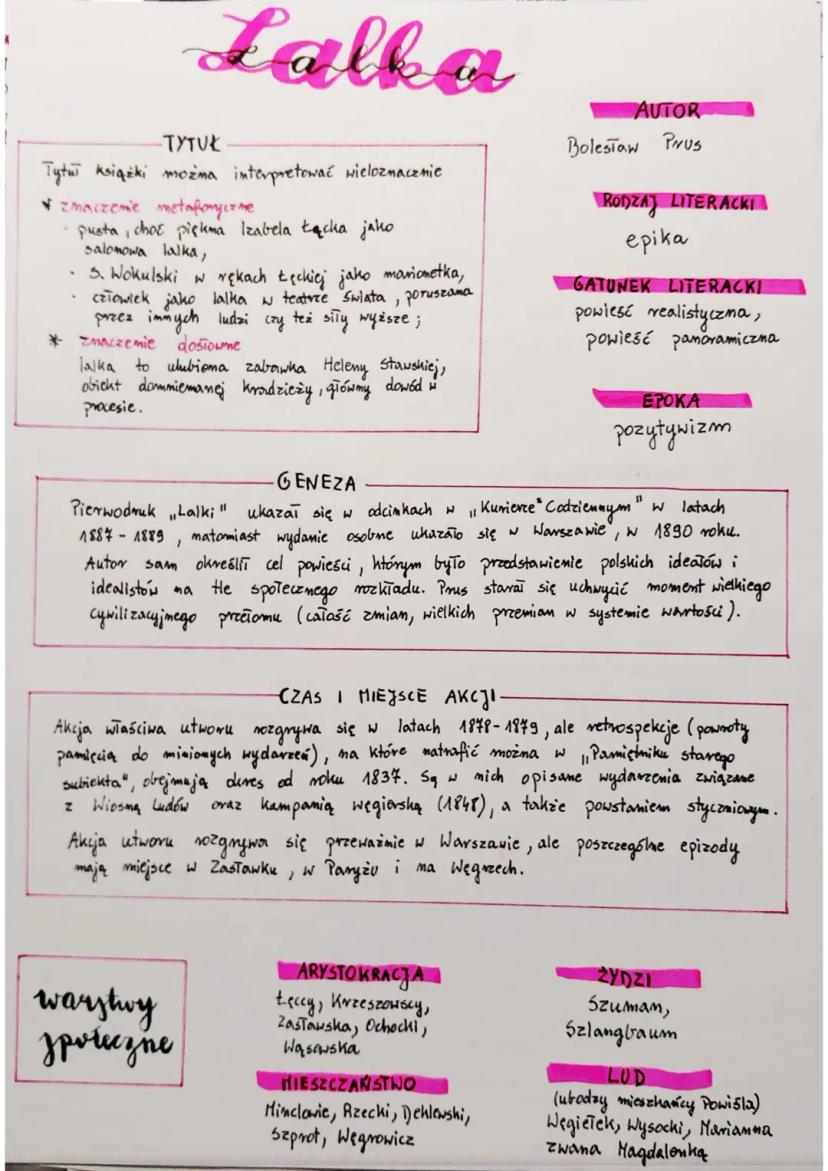 Lalka
Lalka
TYTUŁ
Tytuł książki można interpretować wieloznacznie
* znaczenie metaforyczne
· pusta, choć piękna Izabela Łęcka jako
salonowa lalka,
· S. Wokulski w rękach Łęckiej jako marionetka,
· człowiek jako lalka w teatrze świata, poruszana
przez innych ludzi czy też siły wyższe;
* znaczenie dosłowne
lalka to ulubiona zabawka Heleny Stawskiej,
obiekt domniemanej kradzieży, główny dowód w
procesie.
AUTOR
Bolesław Prus
RODZAJ LITERACKI
epika
GATUNEK LITERACKI
powieść realistyczna,
powieść panoramiczna
EPOKA
pozytywizm
GENEZA
Pierwodruk „Lalki" ukazał się w odcinkach w „Kurierze Codziennym" w latach
1887 - 1889, natomiast wydanie osobne ukazało się w Warszawie, w 1890 roku.
Autor sam określił cel powieści, którym było przedstawienie polskich ideałów i
idealistów na tle społecznego rozkładu. Prus starał się uchwycić moment wielkiego
cywilizacyjnego przełomu (całość zmian, wielkich przemian w systemie wartości).
CZAS I MIEJSCE AKCJI
Akcja właściwa utworu rozgrywa się w latach 1878-1879, ale retrospekcje (powroty
pamięcią do minionych wydarzeń), na które natrafić można w „Pamiętniku starego
subiekta", obejmują okres od roku 1837. Są w nich opisane wydarzenia związane
z Wiosną Ludów oraz kampanią węgierską (1848), a także powstaniem styczniowym.
Akcja utworu rozgrywa się przeważnie w Warszawie, ale poszczególne epizody
mają miejsce w Zasławku, w Paryżu i na Węgrzech.
warstwy
społeczne
ARYSTOKRACJA
Łęccy, Krzeszowscy,
Zasławska, Ochocki,
Wąsowska
MIESZCZAŃSTWO
Minclowie, Rzecki, Deklewski,
Szprot, Węgrowicz
ŻYDZI
Szuman,
Szlangbaum
LUD
(ubodzy mieszkańcy Powiśla)
Węgiełek, Wysocki, Marianna
zwana Magdalenką